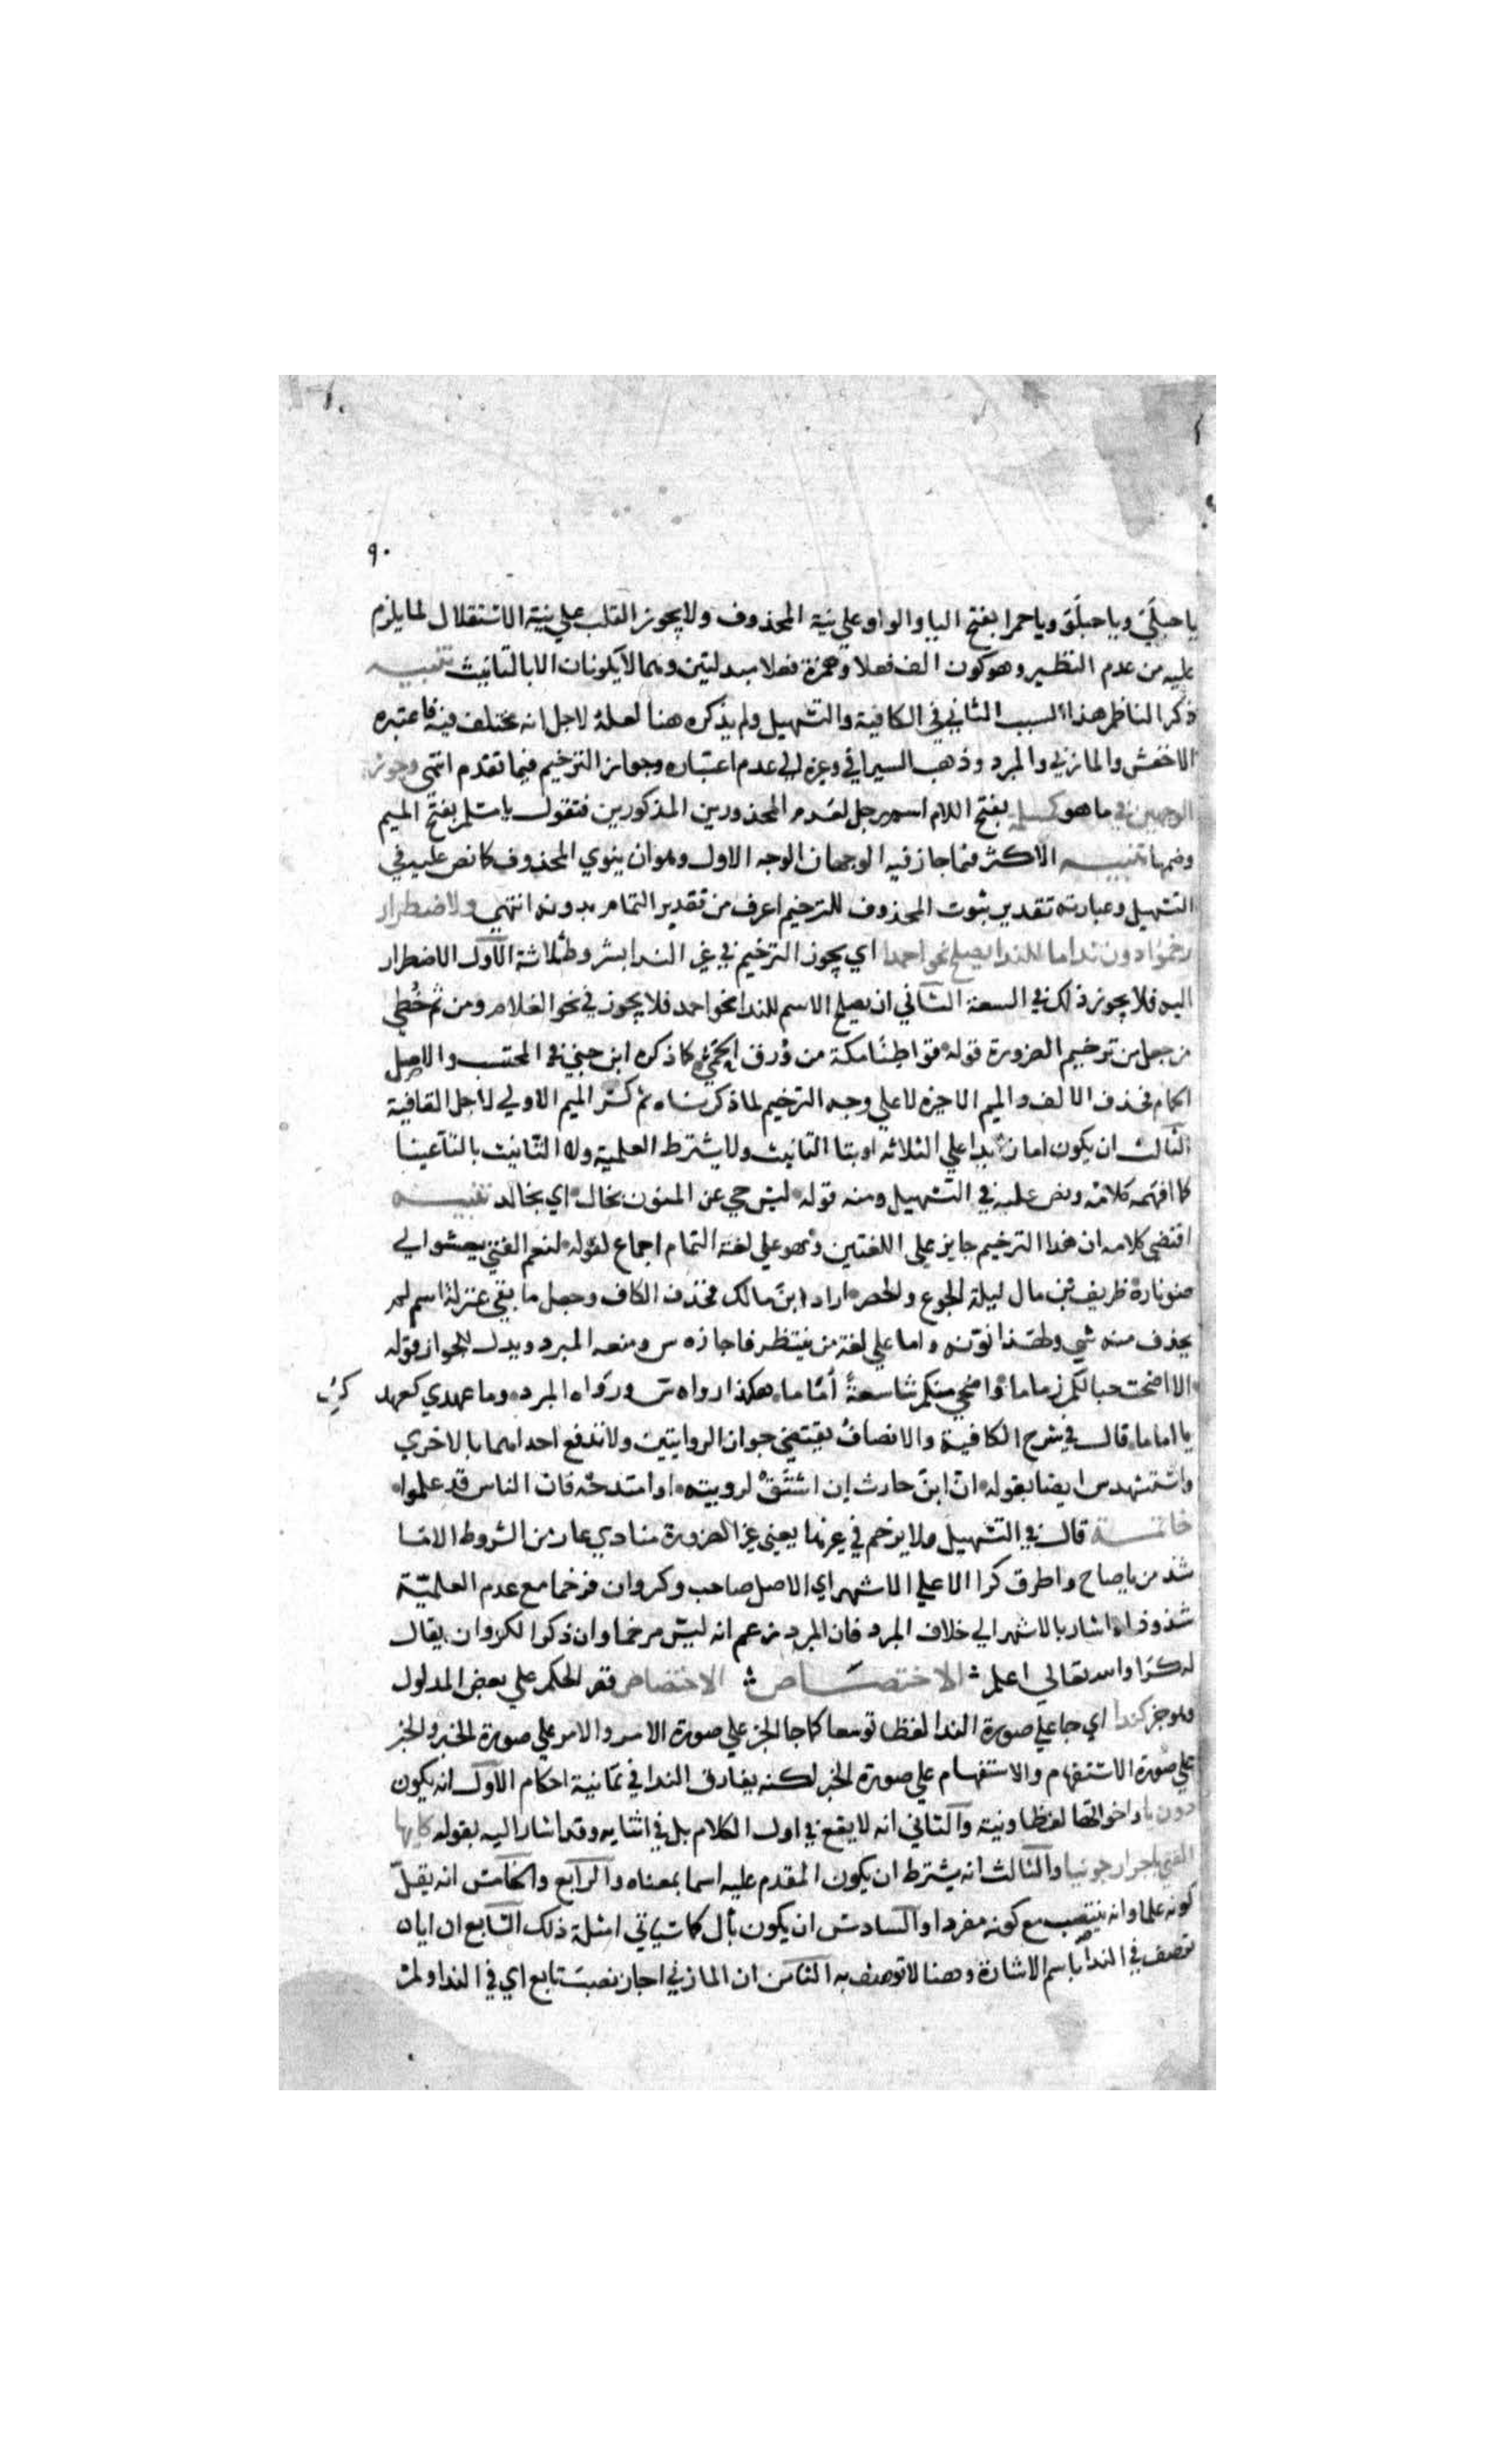 ٩٠
يا حبلَيَ ويا حبلَوَ ويا حمرا بفتح اليا والواو علي نية المحذوف ولا يجوز القلب علي نية الاستقلال لما يلزم
عليه من عدم النظير وهو كون الف فعلا وهمزة فعلا مبدلتين وهما لا يكونان الا بالتانيث تنبيه
ذكر الناظم هذا السبب الثاني في الكافية والتسهيل ولم يذكره هنا لعله لاجل انه مختلف فيه فاعتبره
الاخفش والمازني والمبرد وذهب السيرافي وغيره الي عدم اعتباره وجواز الترخيم فيما تقدم انتهي وجوز
الوجهين في ما هو كمسلمه بفتح اللام اسم رجل لعدم المحذورين المذكورين فتقول يا مسلم بفتح الميم
وضمها تنبيه الاكثر فيما جاز فيه الوجهان الوجه الاول وهو ان ينوي المحذوف كما نص عليه في
التسهيل وعبارته تقدير ثبوت المحذوف للترخيم اعرف من تقدير التمام بدونه انتهي ولاضطرار
رخموا دون ندا ما للندا يصلح نحو احمدا اي يجوز الترخيم في غير الندا بشروط ثلاثة الاول الاضطرار
اليه فلا يجوز ذلك في السعة الثاني ان يصلح الاسم للندا نحو احمد فلا يجوز في نحو الغلام ومن ثم خُطي
من جعل من ترخيم الضرورة قوله قواطنًا مكة من وُرق الحمي كما ذكره ابن جني في المحتسب والاصل
الحمام فحذف الالف والميم الاخيره لا علي وجه الترخيم لما ذكرناه ثم كسر الميم الاولي لاجل القافية
الثالث ان يكون اما زايدا علي الثلاثه او بتا التانيث ولا يشترط العلمية ولا التانيث بالتا عينا
كما افهمه كلامه ونص عليه في التسهيل ومنه قوله ليس حي عن المنون بخال اي بخالد تنبيه
اقتضي كلامه ان هذا الترخيم جايز علي اللغتين وهو علي لغة التمام اجماع لقوله لنعم الفتي يعشو الي
ضو ناره طريف بن مال ليلة الجوع والخصر اراد ابن مالك فحذف الكاف وجعل ما بقي بمنزلة اسم لم
يحذف منه شي ولهذا نونه واما علي لغة من ينتظر فاجازه س ومنعه المبرد ويدل للجواز قوله
الا اضحت حبالكم رماما واضحي منكم شاسعةً أماما هكذا رواه س ورواه المبرد وما عهدي كعهد كِ
يا اماما قال في شرح الكافية والانصاف يقتضي جواز الروايتين ولا تدفع احداهما بالاخري
واستشهد س ايضا بقوله انّ ابنَ حارث إن اشتَق لرويته او امتدحه فان الناس قد علموا
خاتمة قال في التسهيل ولا يرخم في غيرها يعني غير الضرورة منادي عار من الشروط الا ما
شذ من يا صاح واطرق كرا الا علي الاشهر اي الاصل صاحب وكروان فرخما مع عدم العلميّة
شذوذا واشار بالاشهر الي خلاف المبرد فان المبرد زعم انه ليس مرخما وان ذكر الكروان يقال
له كرا والله تعالي اعلم الاختصاص الاختصاص قصر الحكم علي بعض المدلول
وهو خبر كندا اي جا علي صورة الندا لفظا توسعا كما جا الخبر علي صورة الامر والامر علي صورة الخبر والخبر
علي صورة الاستفهام والاستفهام علي صورة الخبر لكنه يفارق الندا في ثمانية احكام الاول انه يكون
دون يا واخواتها لفظا ونية والثاني انه لا يقع في اول الكلام بل في اثنايه وقد اشار اليه بقوله كايها
الفتي باثر ارجونيا والثالث انه يشترط ان يكون المقدم عليه اسما بمعناه والرابع والخامس انه يقلّ
كونه علما وانه ينتصب مع كونه مفردا والسادس ان يكون بأل كما سياتي امثلة ذلك السابع ان ايا
توصف في الندا باسم الاشارة وهنا لا توصف به الثامن ان المازني اجاز نصب تابع اي في الندا ولم